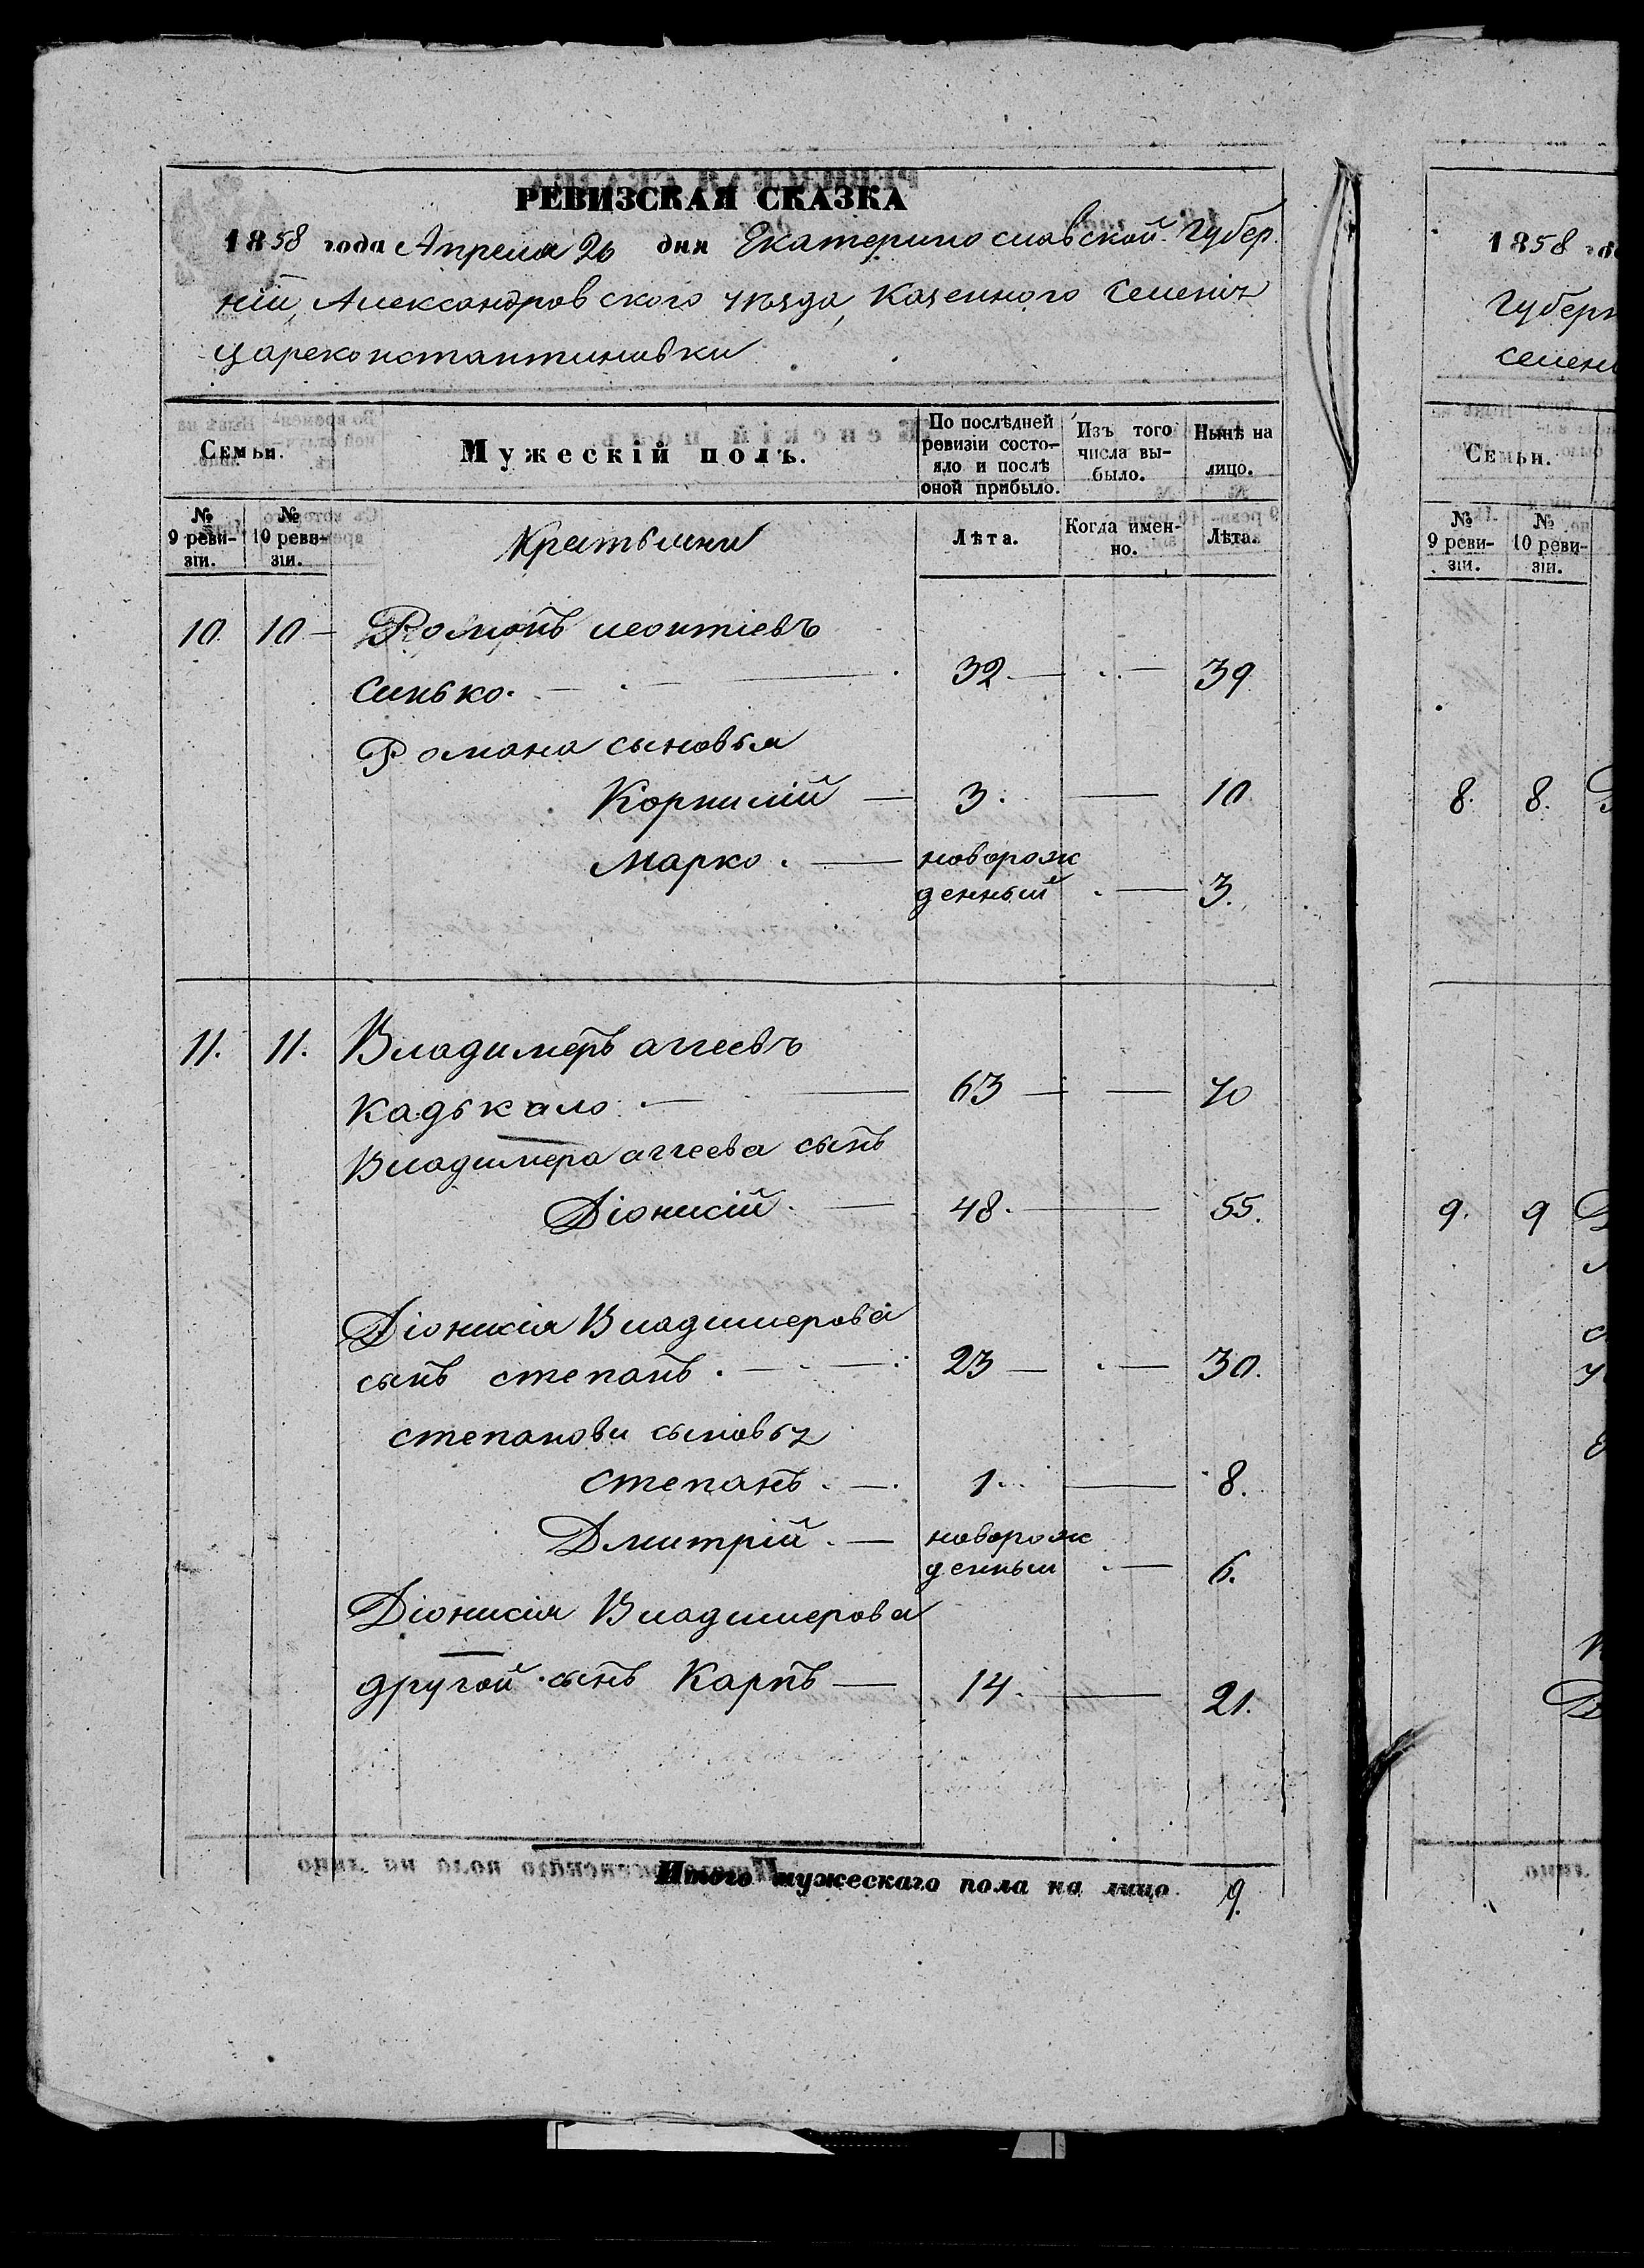 РЕВИЗСКАЯ СКАЗКА
1858 года Апреля 26 дня Екатеринославской Губер
ніи, Александровского уѣзда, Казенного Селенія
Цареконстантиновки
Семьи.
Мужескій полъ.
По послѣдней ревизіи состояло и послѣ оной прибыло.
Изъ того числа выбыло.
Нынѣ на лицо.
№ 9 реви-зіи.
№ 10 реви-зіи.
Крестьяне
Лѣта.
Когда имен-но.
Лѣта.
10. 10 — Романъ леонтіевъ
синько. — 32 — — 39
Романа сыновья
Корнилій — 3. — 10
Марко. — новорож
денный — 3.
11. 11. Владимеръ аггеевъ
Кадькало — 63 — — 70
Владимера аггеева сынъ
Діонисій. — 48. — 55.
Діонисія Владимерова
сынъ степанъ. — 23 — — 30.
степанови сыновья
степанъ. — 1. — 8.
Дмитрій. — новорож
денный — 6.
Діонисія Владимерова
другой сынъ Карпъ — 14. — 21.
Итого мужескаго пола на лицо 9.
1858
Губерн
селен
Семьи.
№ 9 реви-зіи.
№ 10 реви-зіи.
8. 8.
9. 9